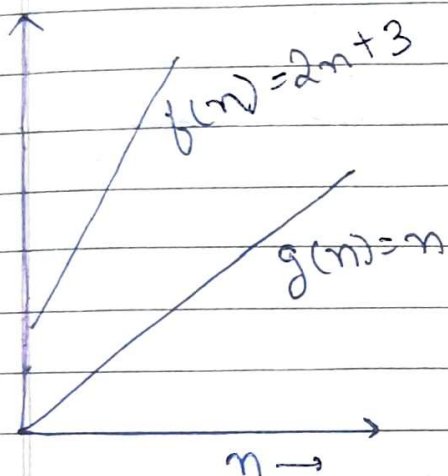 f(n) = 2n + 3
g(n) = n
n →